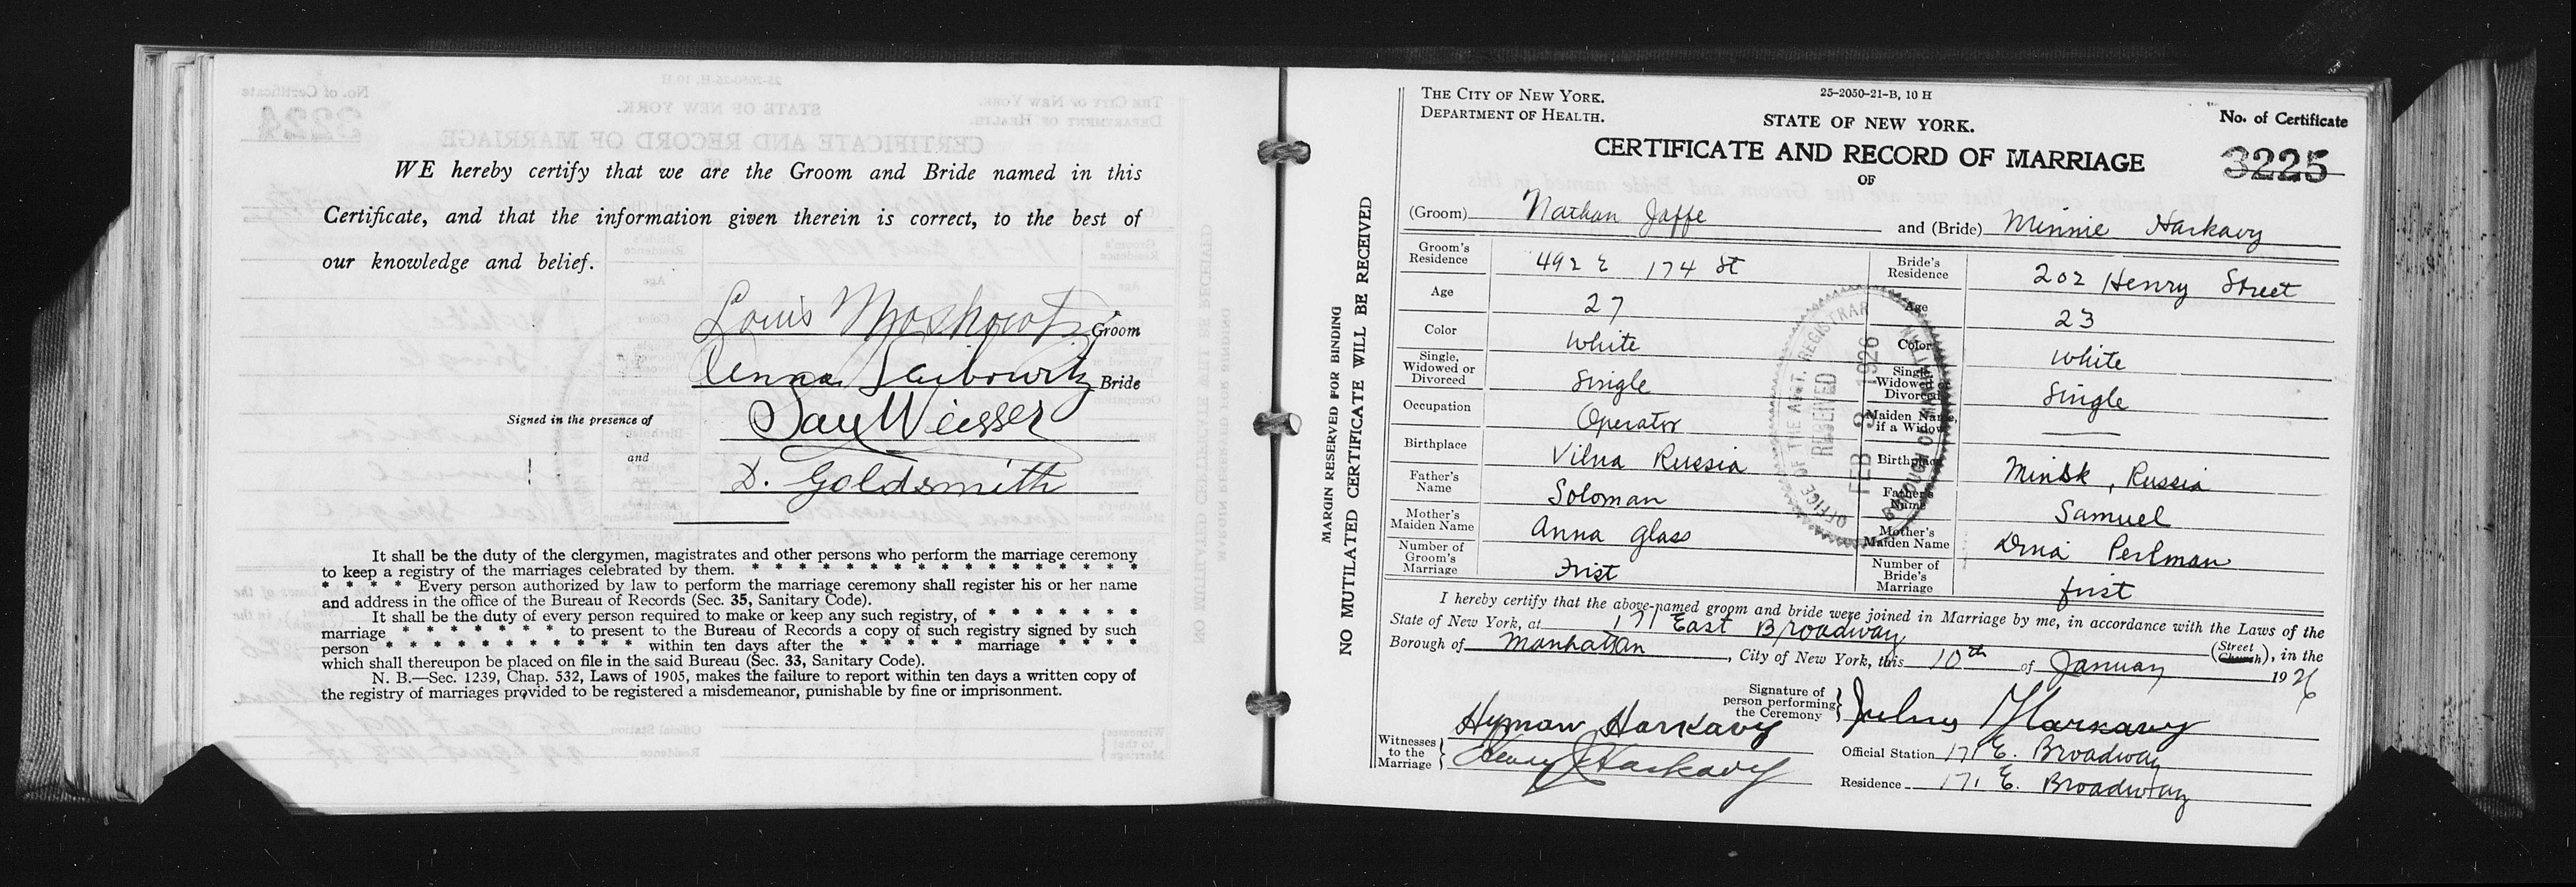 WE hereby certify that we are the Groom and Bride named in this
Certificate, and that the information given therein is correct, to the best of
our knowledge and belief.
Louis Moskowitz Groom
Anna Leibowitz Bride
Signed in the presence of Saul Weisser
and
D. Goldsmith
It shall be the duty of the clergymen, magistrates and other persons who perform the marriage ceremony
to keep a registry of the marriages celebrated by them. * * * * * * * * * * * * * * * * *
* * * * Every person authorized by law to perform the marriage ceremony shall register his or her name
and address in the office of the Bureau of Records (Sec. 35, Sanitary Code).
It shall be the duty of every person required to make or keep any such registry, of * * * * * * *
marriage * * * * * * * to present to the Bureau of Records a copy of such registry signed by such
person * * * * * * * * * * * within ten days after the * * * * * marriage * * * *
which shall thereupon be placed on file in the said Bureau (Sec. 33, Sanitary Code).
N. B.—Sec. 1239, Chap. 532, Laws of 1905, makes the failure to report within ten days a written copy of
the registry of marriages provided to be registered a misdemeanor, punishable by fine or imprisonment.
MARGIN RESERVED FOR BINDING
NO MUTILATED CERTIFICATE WILL BE RECEIVED
THE CITY OF NEW YORK.
DEPARTMENT OF HEALTH.
25-2050-21-B, 10 H
STATE OF NEW YORK.
No. of Certificate
CERTIFICATE AND RECORD OF MARRIAGE
3225
OF
(Groom) Nathan Jaffe and (Bride) Minnie Harkavy
Groom's Residence 492 E 174 St Bride's Residence 202 Henry Street
Age 27 Age 23
Color White Color White
Single, Widowed or Divorced Single Single, Widowed or Divorced Single
Occupation Operator Maiden Name, if a Widow
Birthplace Vilna Russia Birthplace Minsk, Russia
Father's Name Soloman Father's Name Samuel
Mother's Maiden Name Anna Glass Mother's Maiden Name Dina Perlman
Number of Groom's Marriage First Number of Bride's Marriage first
OFFICE OF THE ASST. REGISTRAR
RECEIVED
FEB 3 1926
BOROUGH OF MANHATTAN
I hereby certify that the above-named groom and bride were joined in Marriage by me, in accordance with the Laws of the
State of New York, at 171 East Broadway (Street Church), in the
Borough of Manhattan, City of New York, this 10th of January 1926
Signature of person performing the Ceremony Julius Harkavy
Witnesses to the Marriage Hyman Harkavy
Henry J Harkavy
Official Station 171 E. Broadway
Residence 171 E. Broadway